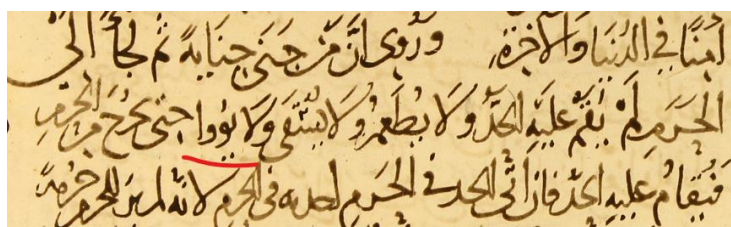 امنا في الدنيا والاخرة وروي ان من جنى جناية ثم لجا الى
الحَرَمِ لَمْ يُقَمْ عليه الحدُّ ولا يُطعَمُ ولا يُسْقى ولا يؤوا حتى يخرج من الحرم
فيُقامُ عليه الحدّ فان اتى الحد في الحَرَمِ في الحرم لانه لم ير للحرم حُرْمَةً